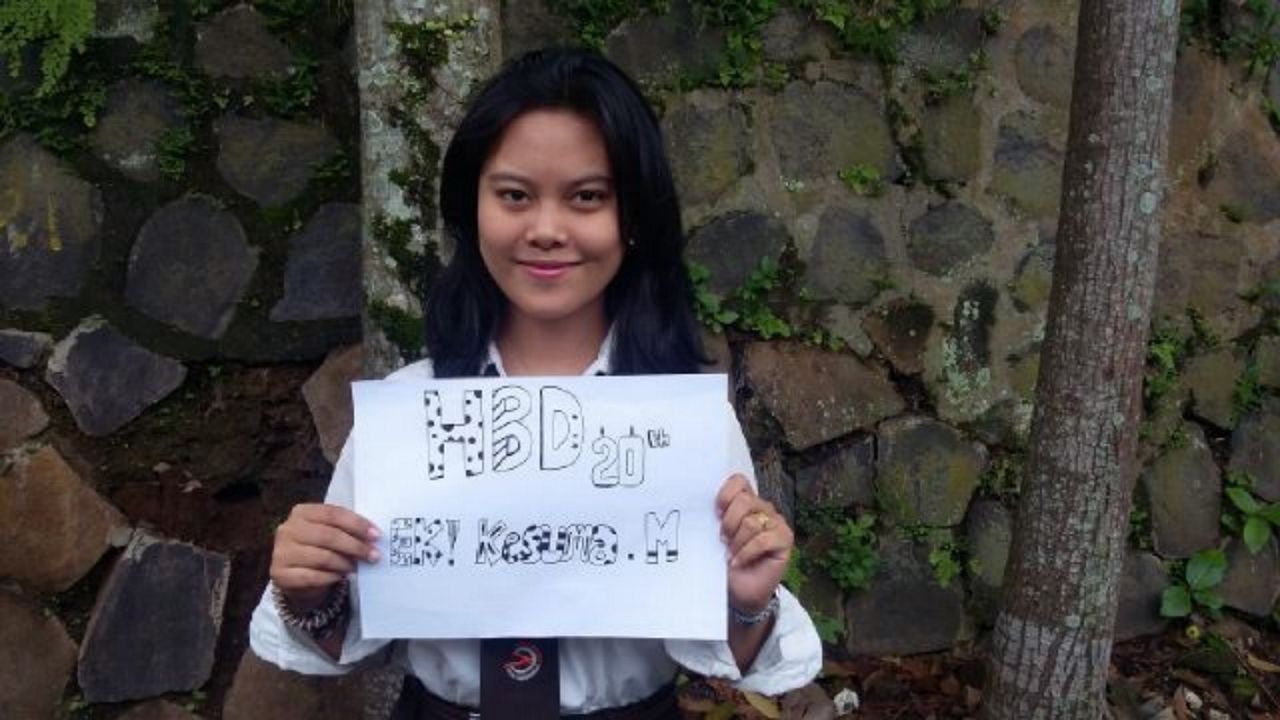 HBD 20th
EKI Kesuma.M